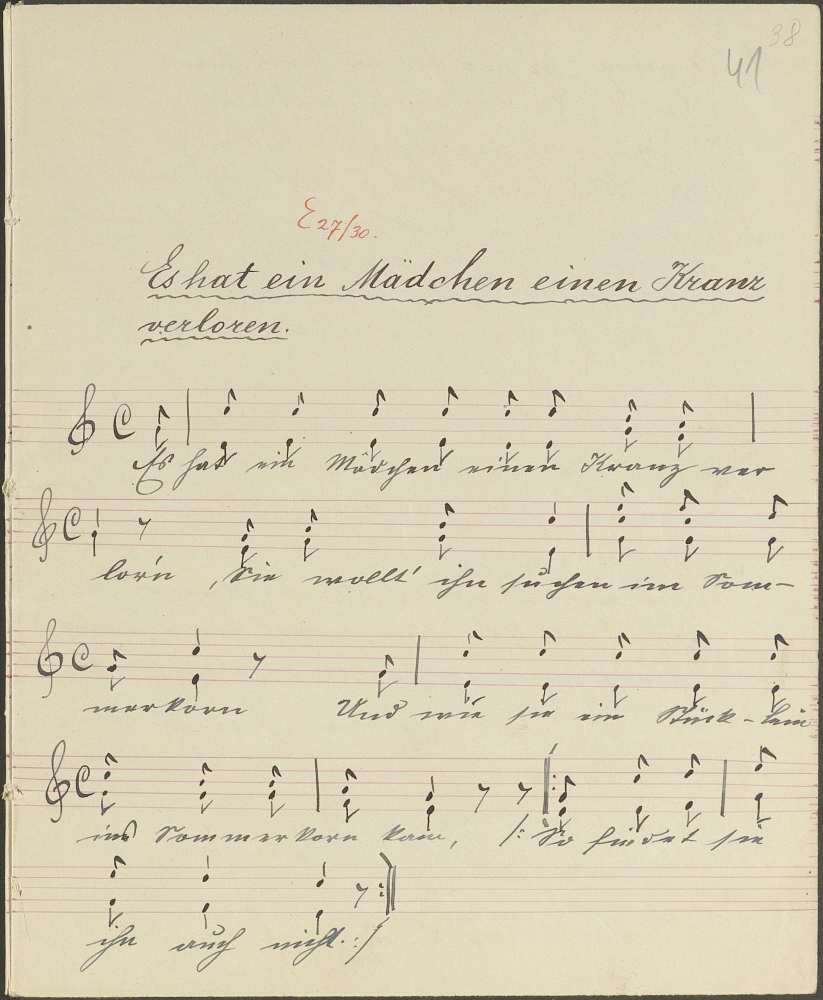 38
41
E 27/30.
Es hat ein Mädchen einen Kranz
verloren.
Es hat ein Mädchen einen Kranz ver
lor'n, Sie wollt' ihn suchen im Som-
merkorn Und wie sie ein Stück-lein
ins Sommerkorn kam, /: So findet sie
ihn auch nicht. :/